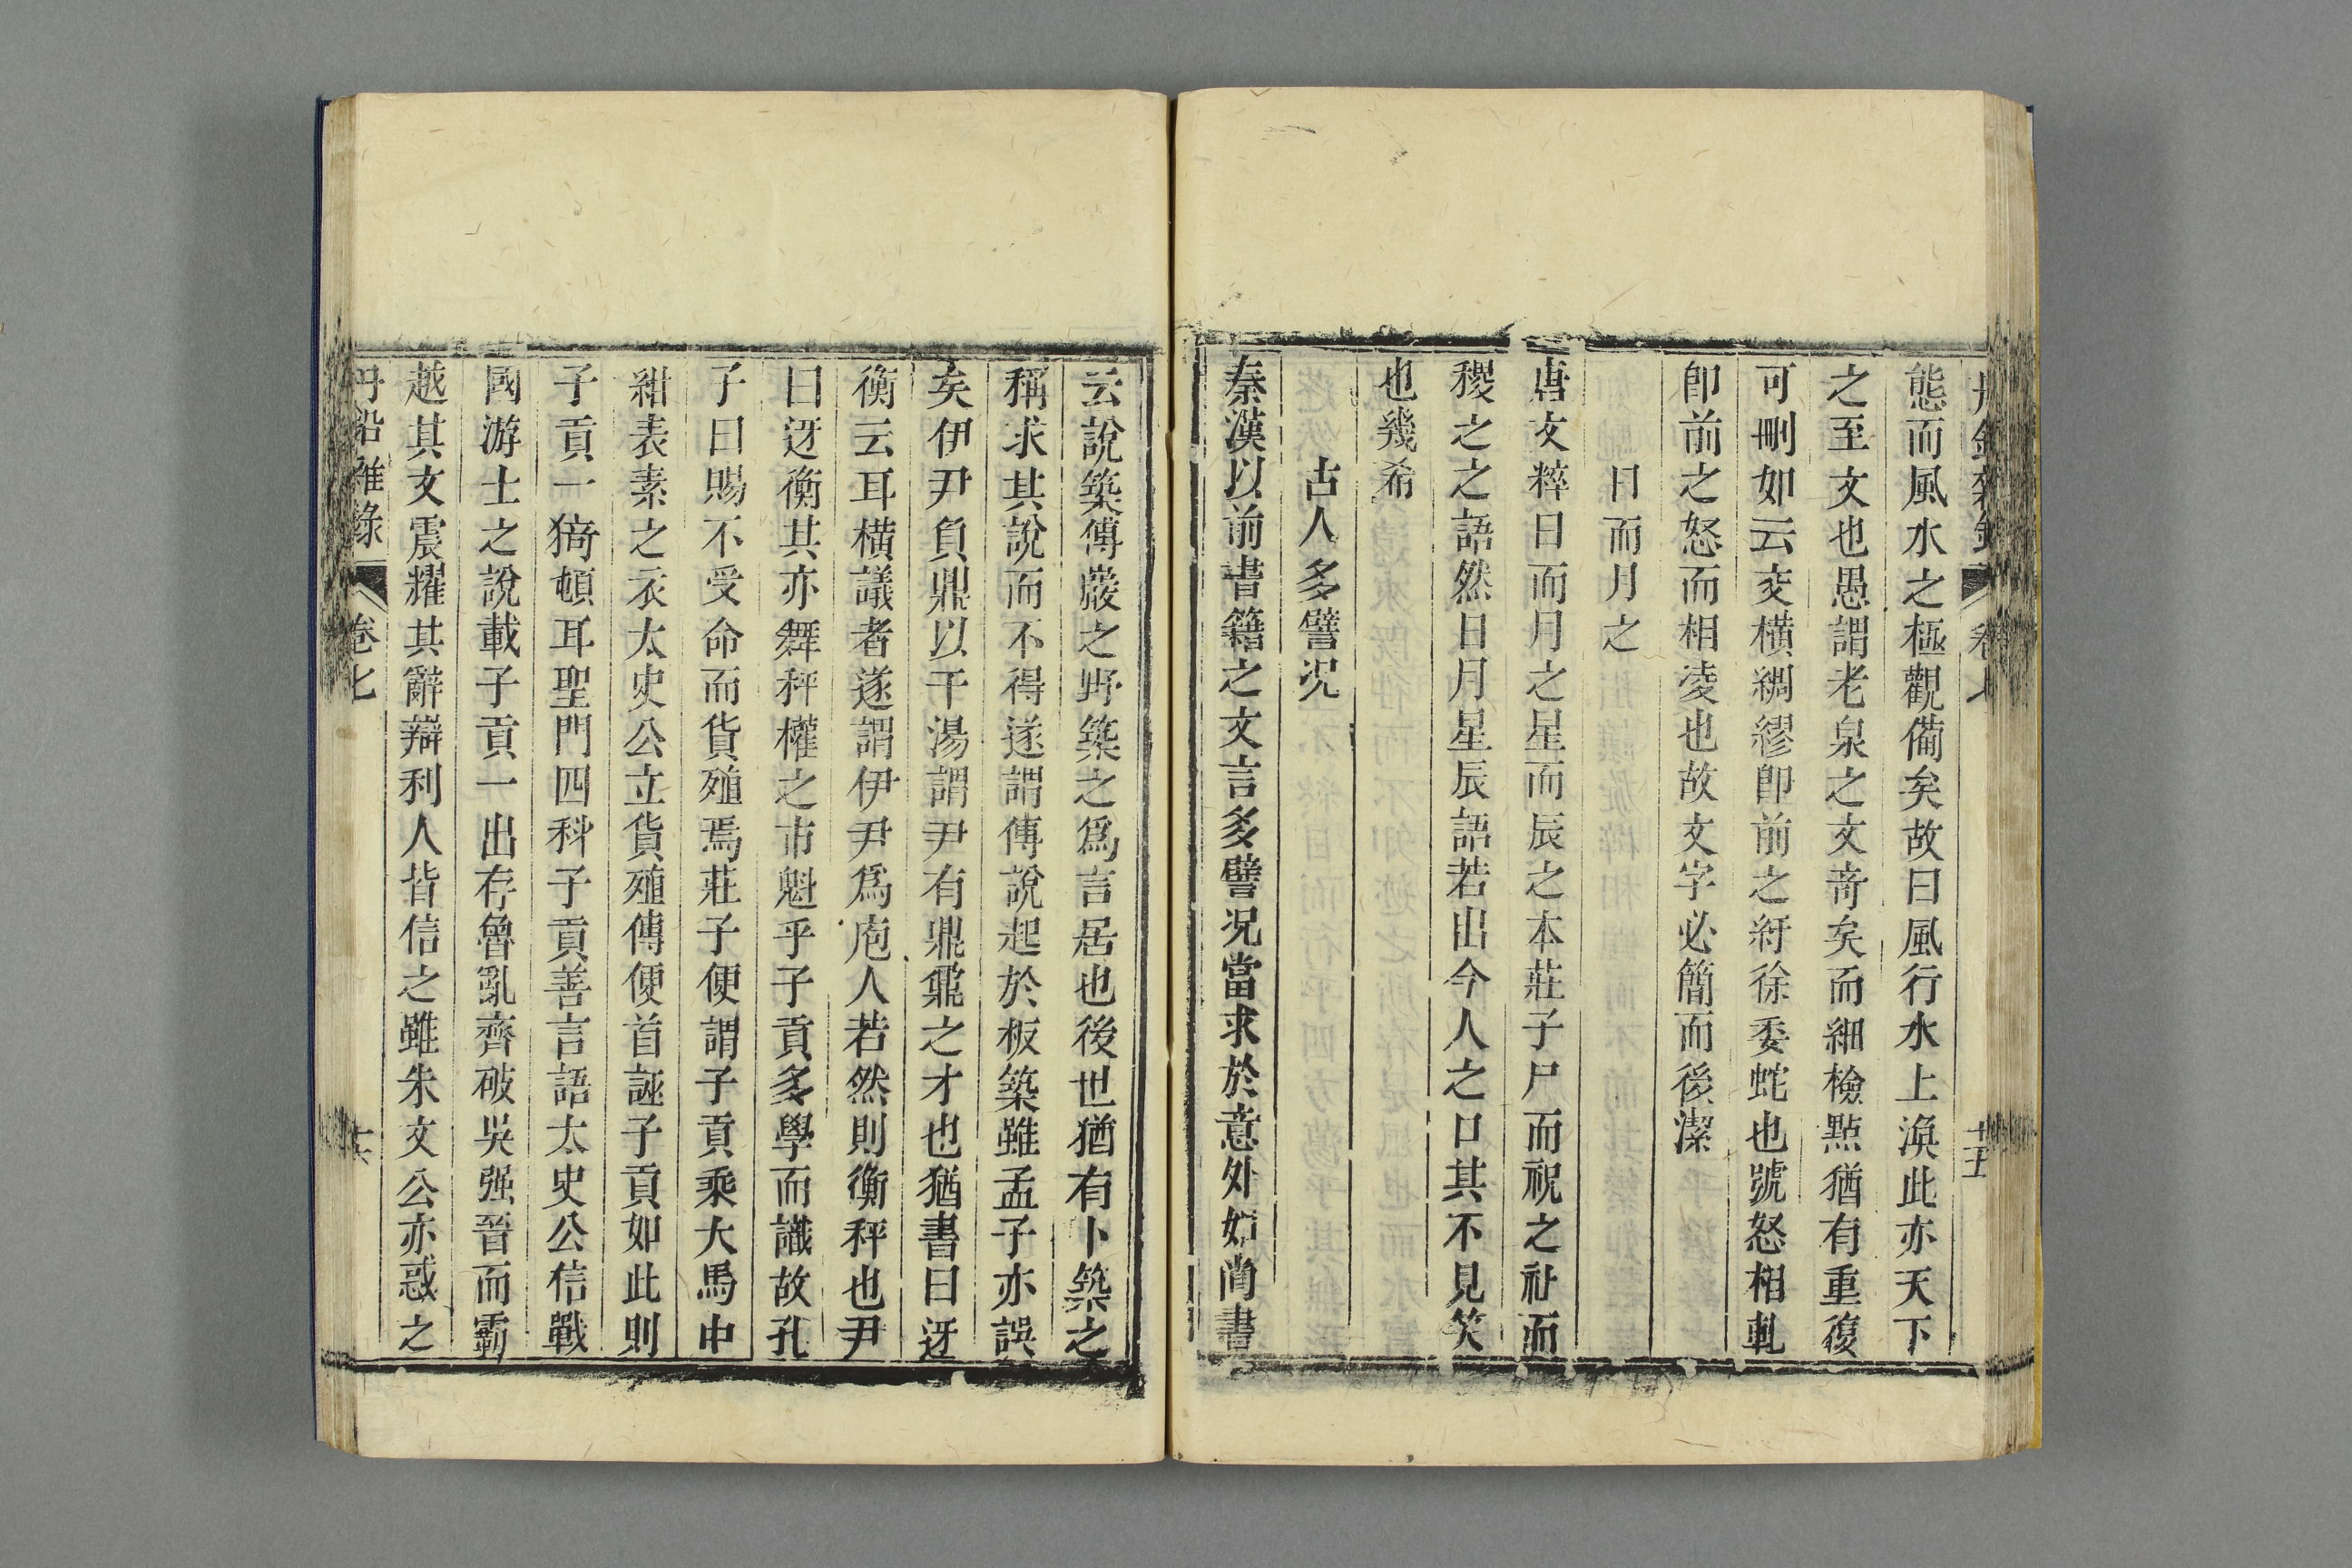 丹鉛雜錄 卷七 十五
態而風水之極觀備矣故曰風行水上渙此亦天下
之至文也愚謂老泉之文奇矣而細檢點猶有重復
可刪如云交橫綢繆卽前之紆徐委蛇也號怒相軋
卽前之怒而相凌也故文字必簡而後潔
日而月之
唐文粹日而月之星而辰之本莊子尸而祝之社而
稷之之語然日月星辰語若出今人之口其不見笑
也幾希
古人多譬況
秦漢以前書籍之文言多譬況當求於意外如尙書
云說築傅巖之野築之爲言居也後世猶有卜築之
稱求其說而不得遂謂傅說起於板築雖孟子亦誤
矣伊尹負鼎以干湯謂尹有鼎鼐之才也猶書曰迓
衡云耳橫議者遂謂伊尹爲庖人若然則衡秤也尹
曰迓衡其亦舞秤權之市魁乎子貢多學而識故孔
子曰賜不受命而貨殖焉莊子便謂子貢乘大馬中
紺表素之衣太史公立貨殖傳便首誣子貢如此則
子貢一猗頓耳聖門四科子貢善言語太史公信戰
國游士之說載子貢一出存魯亂齊破吳强晉而霸
越其文震耀其辭辯利人皆信之雖朱文公亦惑之
丹鉛雜錄 卷七 十六